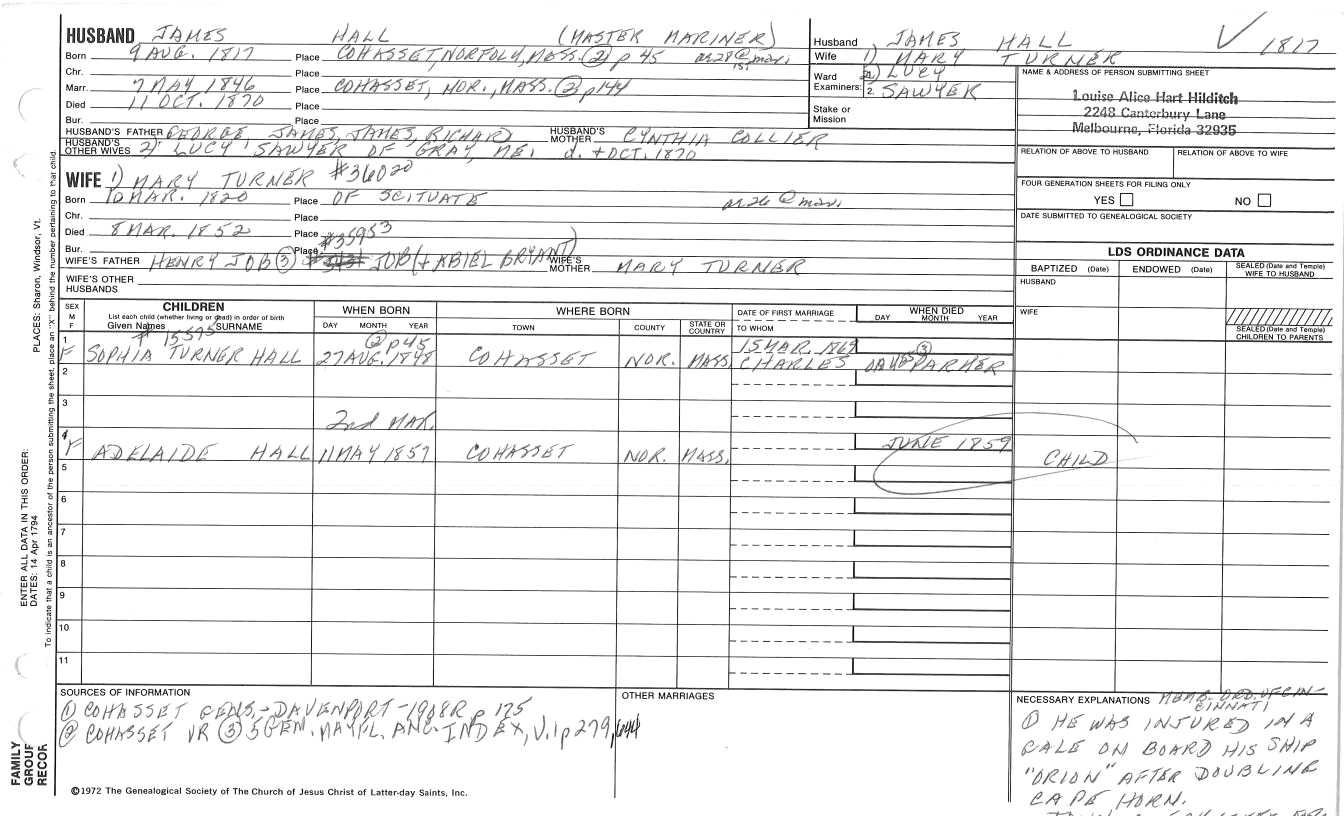 HUSBAND JAMES HALL (MASTER MARINER)
Born 9 AUG. 1817 Place COHASSET, NORFOLK, MASS. ② p 45
Chr. Place
Marr. 7 MAY 1846 Place COHASSET, NOR., MASS. ② p 144
Died 11 OCT. 1870 Place
Bur. Place
HUSBAND'S FATHER GEORGE, JAMES, JAMES, RICHARD HUSBAND'S MOTHER CYNTHIA COLLIER
HUSBAND'S OTHER WIVES 2) LUCY SAWYER OF GRAY, ME. d. + OCT. 1870
Husband JAMES HALL 1817
Wife 1) MARY TURNER
2) LUCY SAWYER
Ward Examiners: 1. 2.
Stake or Mission
NAME & ADDRESS OF PERSON SUBMITTING SHEET
Louise Alice Hart Hilditch
2248 Canterbury Lane
Melbourne, Florida 32935
RELATION OF ABOVE TO HUSBAND RELATION OF ABOVE TO WIFE
FOUR GENERATION SHEETS FOR FILING ONLY
YES NO
DATE SUBMITTED TO GENEALOGICAL SOCIETY
WIFE 1) MARY TURNER #36020
Born 10 MAR. 1820 Place OF SCITUATE
Chr. Place
Died 8 MAR. 1852 Place
Bur. Place #35953
WIFE'S FATHER HENRY JOB ③ JOB (+ ABIEL BRYANT) WIFE'S MOTHER MARY TURNER
WIFE'S OTHER HUSBANDS
LDS ORDINANCE DATA
BAPTIZED (Date) ENDOWED (Date) SEALED (Date and Temple) WIFE TO HUSBAND
HUSBAND
WIFE
SEALED (Date and Temple) CHILDREN TO PARENTS
SEX M F
CHILDREN
List each child (whether living or dead) in order of birth
Given Names SURNAME
WHEN BORN
DAY MONTH YEAR
WHERE BORN
TOWN COUNTY STATE OR COUNTRY
DATE OF FIRST MARRIAGE
TO WHOM
WHEN DIED
DAY MONTH YEAR
# 15595 ② p 45 15 MAR. 1869 ③
1 F SOPHIA TURNER HALL 27 AUG. 1848 COHASSET NOR. MASS. CHARLES DAVIS PARKER
2
3
2nd MAR.
4 F ADELAIDE HALL 11 MAY 1857 COHASSET NOR. MASS. JUNE 1859 CHILD
5
6
7
8
9
10
11
SOURCES OF INFORMATION
① COHASSET GENS. - DAVENPORT - 1908R p 175
② COHASSET VR ③ 5 GEN. MAYFL. ANC. INDEX, V.1 p 279, 644
©1972 The Genealogical Society of The Church of Jesus Christ of Latter-day Saints, Inc.
OTHER MARRIAGES
NECESSARY EXPLANATIONS MEMB. ORD. OF CINCINNATI
① HE WAS INJURED IN A
GALE ON BOARD HIS SHIP
"ORION" AFTER DOUBLING
CAPE HORN.
PLACES: Sharon, Windsor, Vt.
ENTER ALL DATA IN THIS ORDER:
DATES: 14 Apr 1794
To indicate that a child is an ancestor of the person submitting the sheet, place an "X" behind the number pertaining to that child.
FAMILY GROUP RECOR